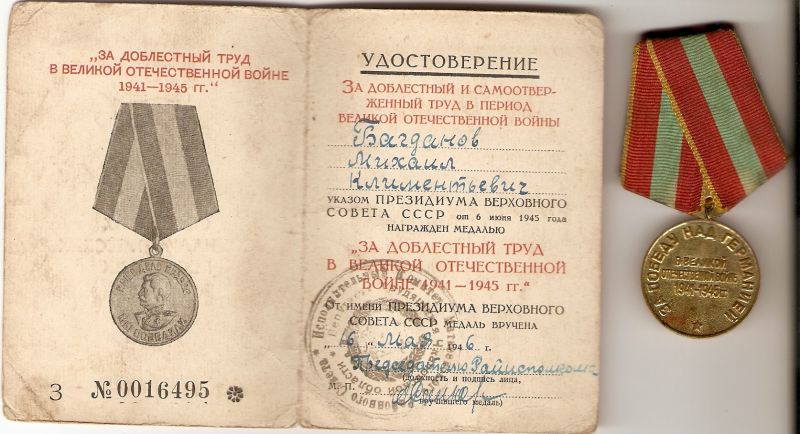 „ЗА ДОБЛЕСТНЫЙ ТРУД
В ВЕЛИКОЙ ОТЕЧЕСТВЕННОЙ ВОЙНЕ
1941—1945 гг.“
НАШЕ ДЕЛО ПРАВОЕ
МЫ ПОБЕДИЛИ
З №0016495
УДОСТОВЕРЕНИЕ
ЗА ДОБЛЕСТНЫЙ И САМООТВЕР-
ЖЕННЫЙ ТРУД В ПЕРИОД
ВЕЛИКОЙ ОТЕЧЕСТВЕННОЙ ВОЙНЫ
Багданов
Михаил
Климентьевич
УКАЗОМ ПРЕЗИДИУМА ВЕРХОВНОГО
СОВЕТА СССР от 6 июня 1945 года
НАГРАЖДЕН МЕДАЛЬЮ
„ЗА ДОБЛЕСТНЫЙ ТРУД
В ВЕЛИКОЙ ОТЕЧЕСТВЕННОЙ
ВОЙНЕ 1941—1945 гг.“
От имени ПРЕЗИДИУМА ВЕРХОВНОГО
СОВЕТА СССР МЕДАЛЬ ВРУЧЕНА
„16“ Мая 1946 г.
Председателю Райисполкома
(должность и подпись лица,
М. П.
вручившего медаль)
Исполнительный Комитет
ЗА ПОБЕДУ НАД ГЕРМАНИЕЙ
В ВЕЛИКОЙ
ОТЕЧЕСТВЕННОЙ ВОЙНЕ
1941-1945гг